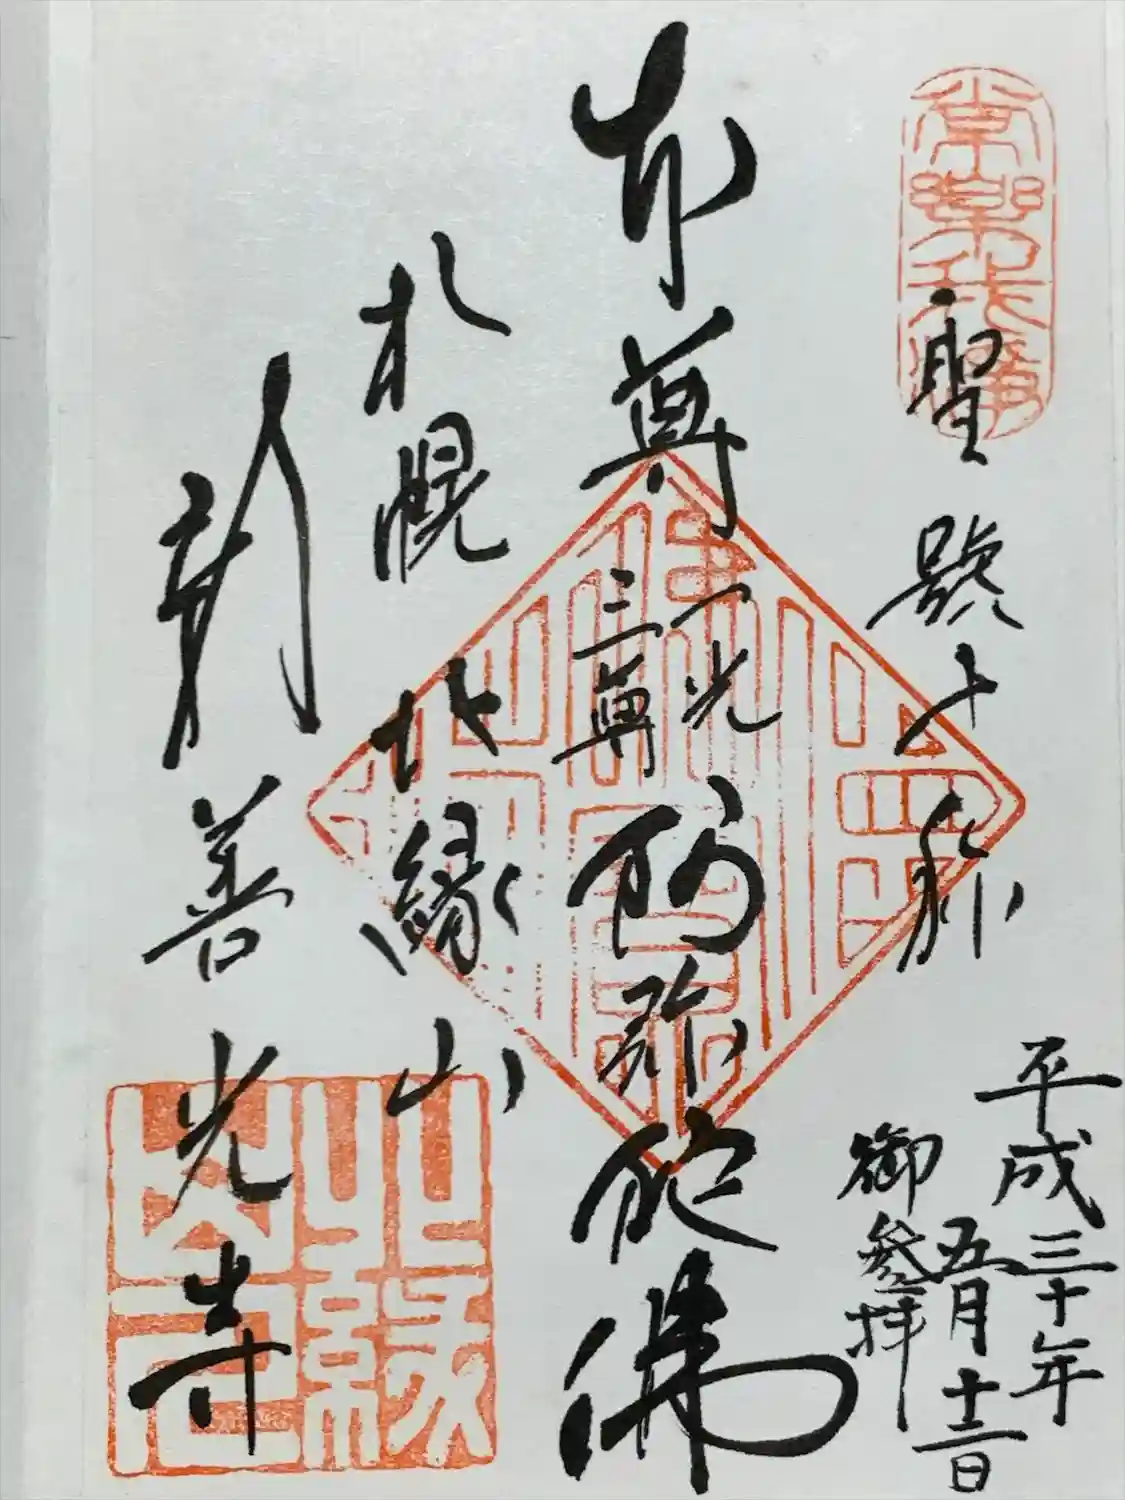 聖號十稱
平成三十年
五月十三日
御參拝
本尊
一光
三尊
阿弥陀佛
札幌
北縁山
新善光寺
常樂我淨
北縁山